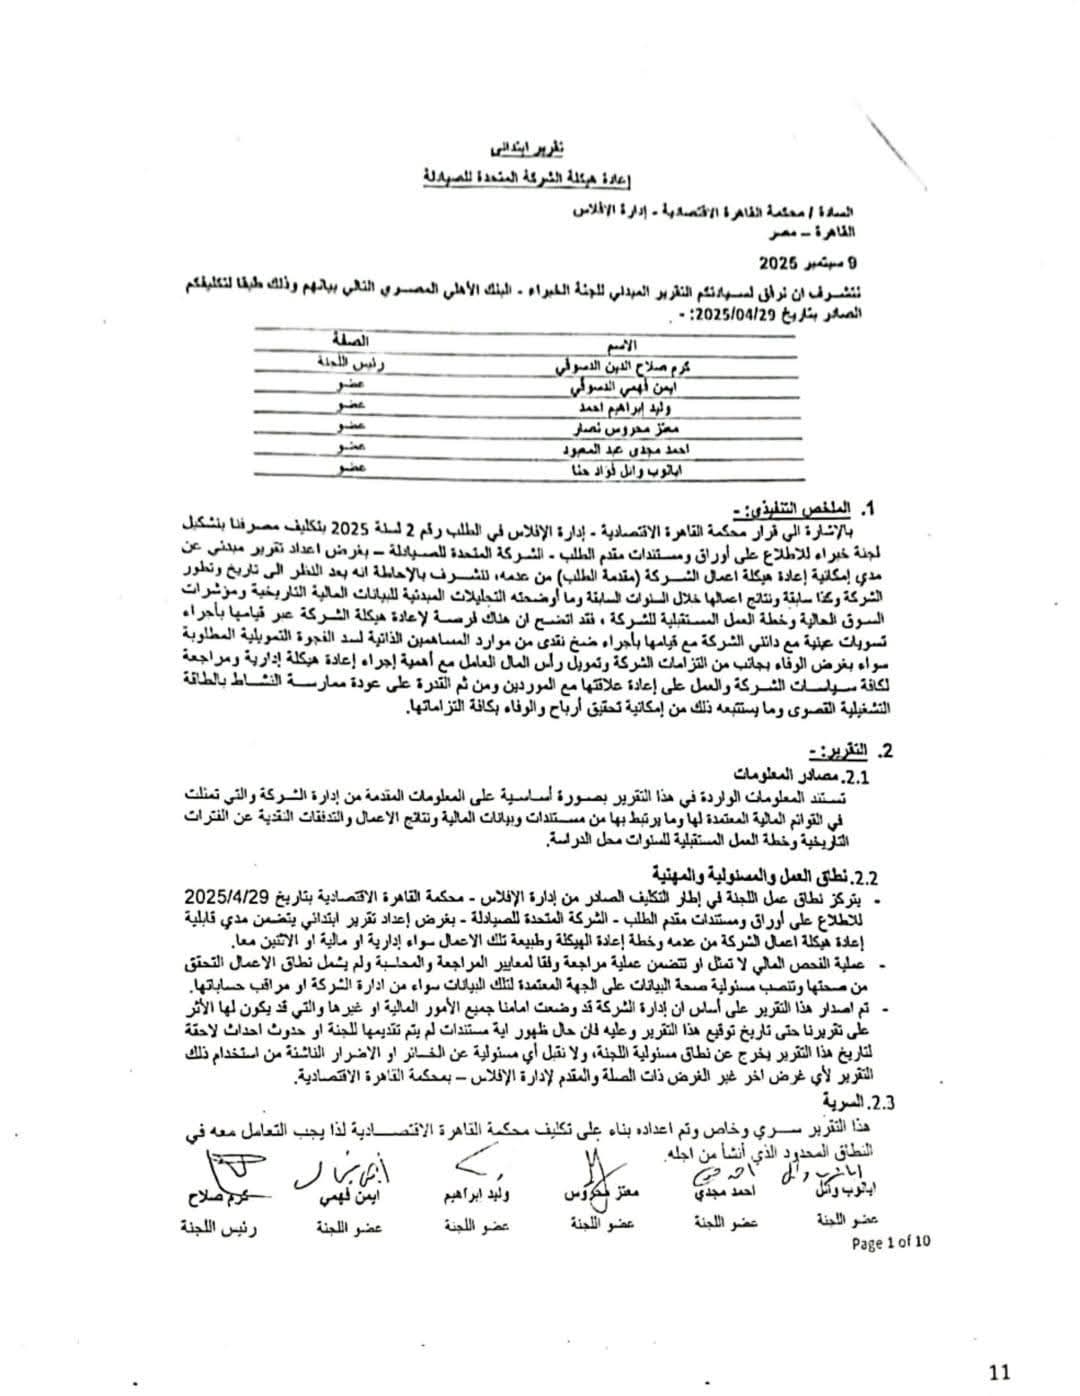 تقرير ابتدائي
إعادة هيكلة الشركة المتحدة للصيادلة
السادة / محكمة القاهرة الاقتصادية - إدارة الإفلاس
القاهرة – مصر
9 سبتمبر 2025
نتشرف ان نرفق لسيادتكم التقرير المبدئي للجنة الخبراء - البنك الأهلي المصري التالي بيانهم وذلك طبقا لتكليفكم
الصادر بتاريخ 2025/04/29: -
الاسم الصفة
كرم صلاح الدين الدسوقي رئيس اللجنة
ايمن فهمي الدسوقي عضو
وليد إبراهيم احمد عضو
معتز محروس نصار عضو
احمد مجدى عبد المعبود عضو
ابانوب وائل فؤاد حنا عضو
1. الملخص التنفيذي: -
بالإشارة الي قرار محكمة القاهرة الاقتصادية - إدارة الإفلاس في الطلب رقم 2 لسنة 2025 بتكليف مصرفنا بتشكيل
لجنة خبراء للاطلاع على أوراق ومستندات مقدم الطلب - الشركة المتحدة للصيادلة – بغرض اعداد تقرير مبدئي عن
مدي إمكانية إعادة هيكلة اعمال الشركة (مقدمة الطلب) من عدمه، نتشرف بالإحاطة انه بعد النظر الى تاريخ وتطور
الشركة وكذا سابقة ونتائج اعمالها خلال السنوات السابقة وما أوضحته التحليلات المبدئية للبيانات المالية التاريخية ومؤشرات
السوق الحالية وخطة العمل المستقبلية للشركة ، فقد اتضح ان هناك فرصة لإعادة هيكلة الشركة عبر قيامها بأجراء
تسويات عينية مع دائني الشركة مع قيامها بأجراء ضخ نقدى من موارد المساهمين الذاتية لسد الفجوة التمويلية المطلوبة
سواء بغرض الوفاء بجانب من التزامات الشركة وتمويل رأس المال العامل مع أهمية إجراء إعادة هيكلة إدارية ومراجعة
لكافة سياسات الشركة والعمل على إعادة علاقتها مع الموردين ومن ثم القدرة على عودة ممارسة النشاط بالطاقة
التشغيلية القصوى وما يستتبعه ذلك من إمكانية تحقيق أرباح والوفاء بكافة التزاماتها.
2. التقرير: -
2.1. مصادر المعلومات
تستند المعلومات الواردة في هذا التقرير بصورة أساسية على المعلومات المقدمة من إدارة الشركة والتي تمثلت
في القوائم المالية المعتمدة لها وما يرتبط بها من مستندات وبيانات المالية ونتائج الاعمال والتدفقات النقدية عن الفترات
التاريخية وخطة العمل المستقبلية للسنوات محل الدراسة.
2.2. نطاق العمل والمسئولية والمهنية
- يتركز نطاق عمل اللجنة في إطار التكليف الصادر من إدارة الإفلاس - محكمة القاهرة الاقتصادية بتاريخ 2025/4/29
للاطلاع على أوراق ومستندات مقدم الطلب - الشركة المتحدة للصيادلة - بغرض إعداد تقرير ابتدائي يتضمن مدي قابلية
إعادة هيكلة اعمال الشركة من عدمه وخطة إعادة الهيكلة وطبيعة تلك الاعمال سواء إدارية او مالية او الاثنين معا.
- عملية الفحص المالي لا تمثل او تتضمن عملية مراجعة وفقا لمعايير المراجعة والمحاسبة ولم يشمل نطاق الاعمال التحقق
من صحتها وتنصب مسئولية صحة البيانات على الجهة المعتمدة لتلك البيانات سواء من ادارة الشركة او مراقب حساباتها.
- تم اصدار هذا التقرير على أساس ان إدارة الشركة قد وضعت امامنا جميع الأمور المالية او غيرها والتي قد يكون لها الأثر
على تقريرنا حتى تاريخ توقيع هذا التقرير وعليه فان حال ظهور اية مستندات لم يتم تقديمها للجنة او حدوث احداث لاحقة
لتاريخ هذا التقرير يخرج عن نطاق مسئولية اللجنة، ولا نقبل أي مسئولية عن الخسائر او الاضرار الناشئة من استخدام ذلك
التقرير لأي غرض اخر غير الغرض ذات الصلة والمقدم لإدارة الإفلاس – بمحكمة القاهرة الاقتصادية.
2.3. السرية
هذا التقرير سري وخاص وتم اعداده بناء على تكليف محكمة القاهرة الاقتصادية لذا يجب التعامل معه في
النطاق المحدود الذي أنشأ من اجله.
ابانوب وائل احمد مجدي معتز محروس وليد ابراهيم ايمن فهمي كرم صلاح
عضو اللجنة عضو اللجنة عضو اللجنة عضو اللجنة عضو اللجنة رئيس اللجنة
Page 1 of 10
11